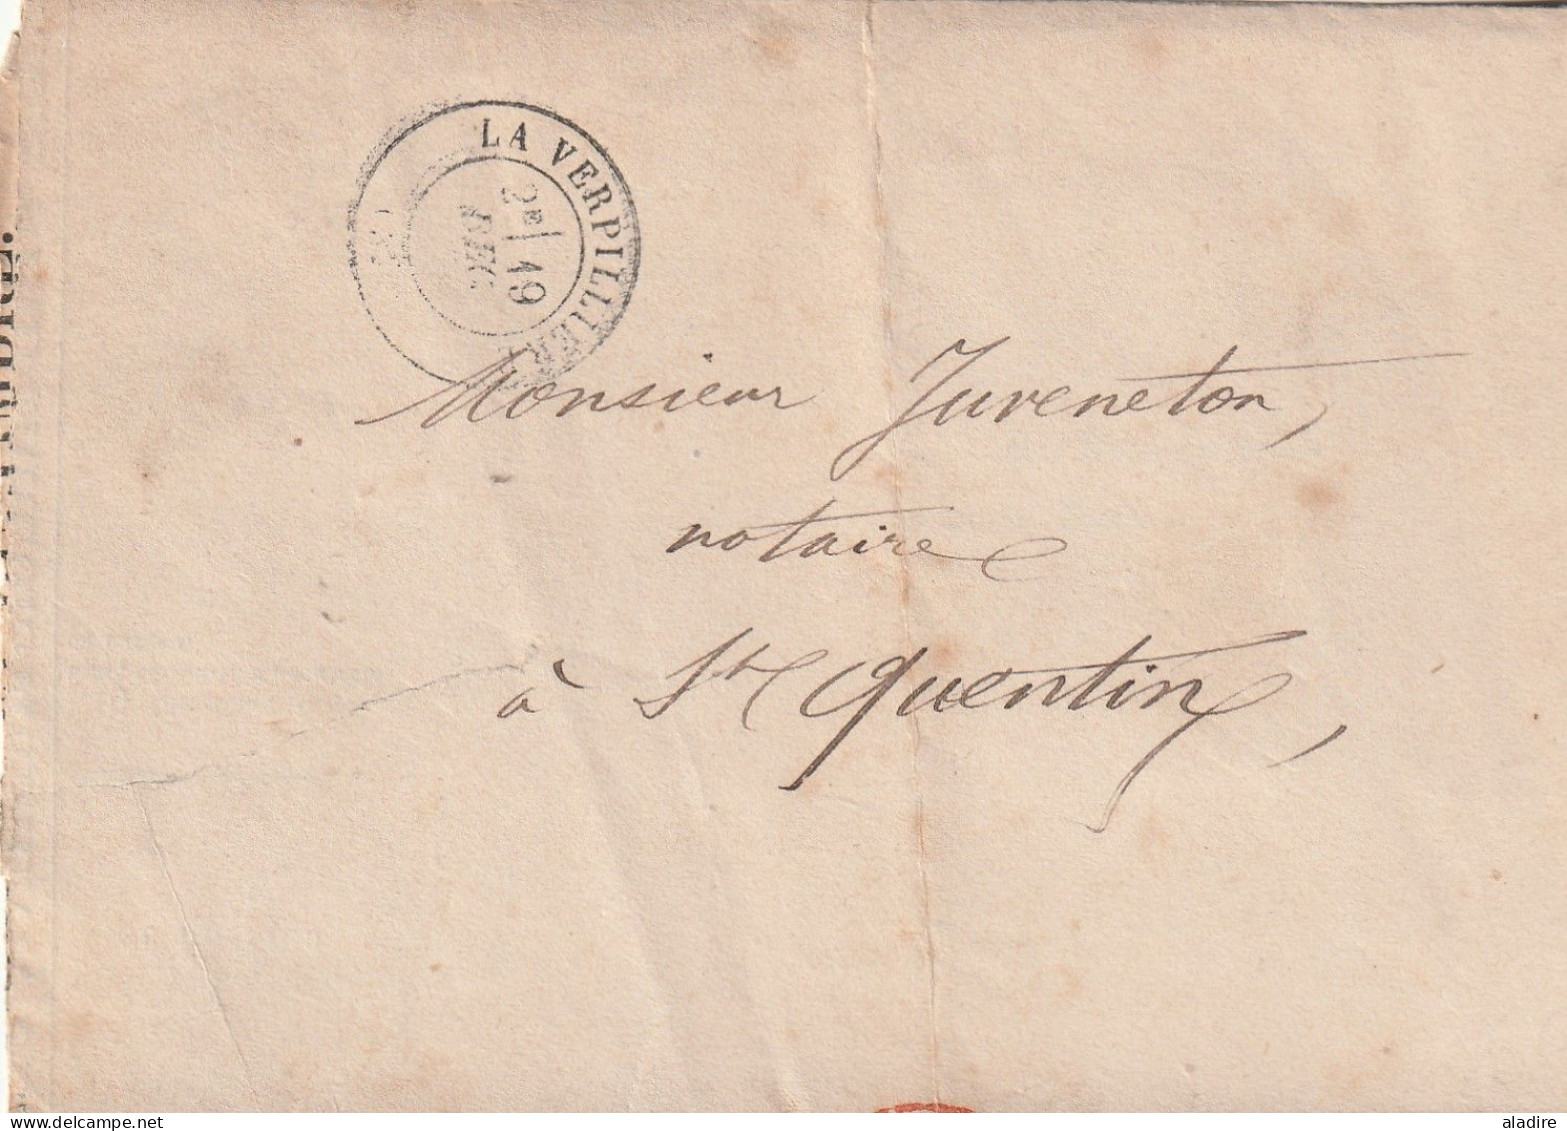 LA VERPILLIERE
2E 19
DEC.
(37)
Monsieur Juveneton,
notaire
à St Quentin,
delcampe.net
aladire